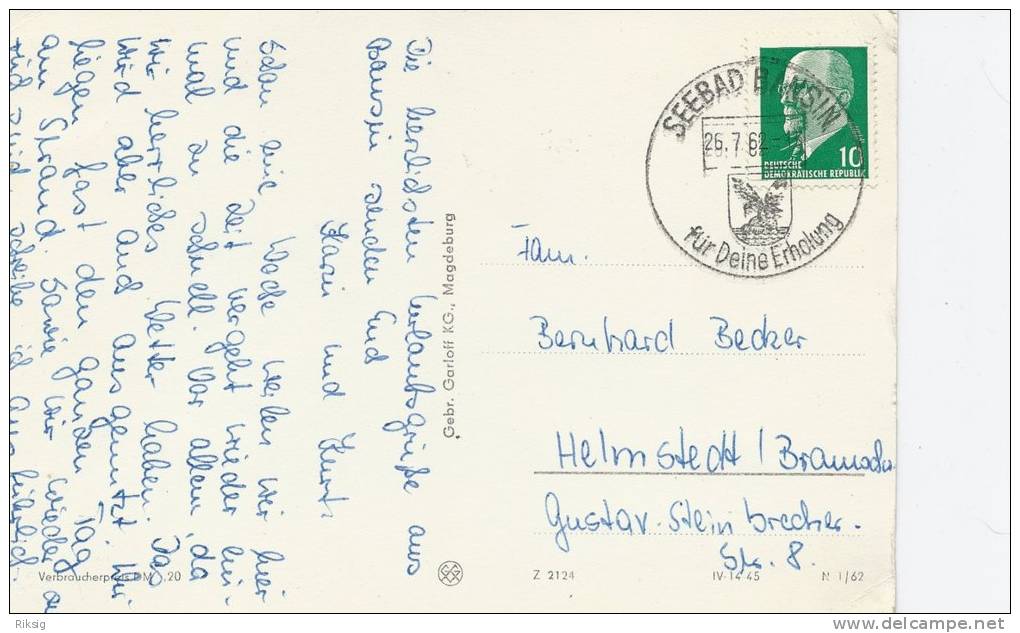 Die herzlichsten Urlaubsgrüße aus
Bansin senden Euch
Karin und Kurt.
Schon eine Woche weilen wir hier
und die Zeit vergeht wieder ein-
mal zu schnell. Vor allem, da
wir herrliches Wetter haben. Das
wird aber auch ausgenutzt. Wir
liegen fast den ganzen Tag
am Strand. Sowie wir wieder zu
rück sind schreibe ich ausführlich.
Gebr. Garloff KG., Magdeburg
SEEBAD BANSIN
26.7.62
für Deine Erholung
10
DEUTSCHE
DEMOKRATISCHE REPUBLIK
Fam.
Bernhard Becker
Helmstedt /
Gustav-Steinbrecher-
Str. 8.
Verbraucherpreis DM ,20
Z 2124
IV-14-45
N 1/62
Riksig
www.delcampe.net